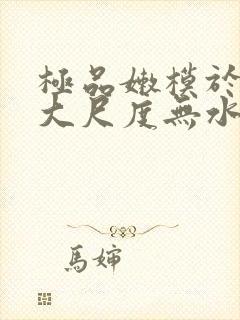 極品嫩模於
大尺度無水
馬婶